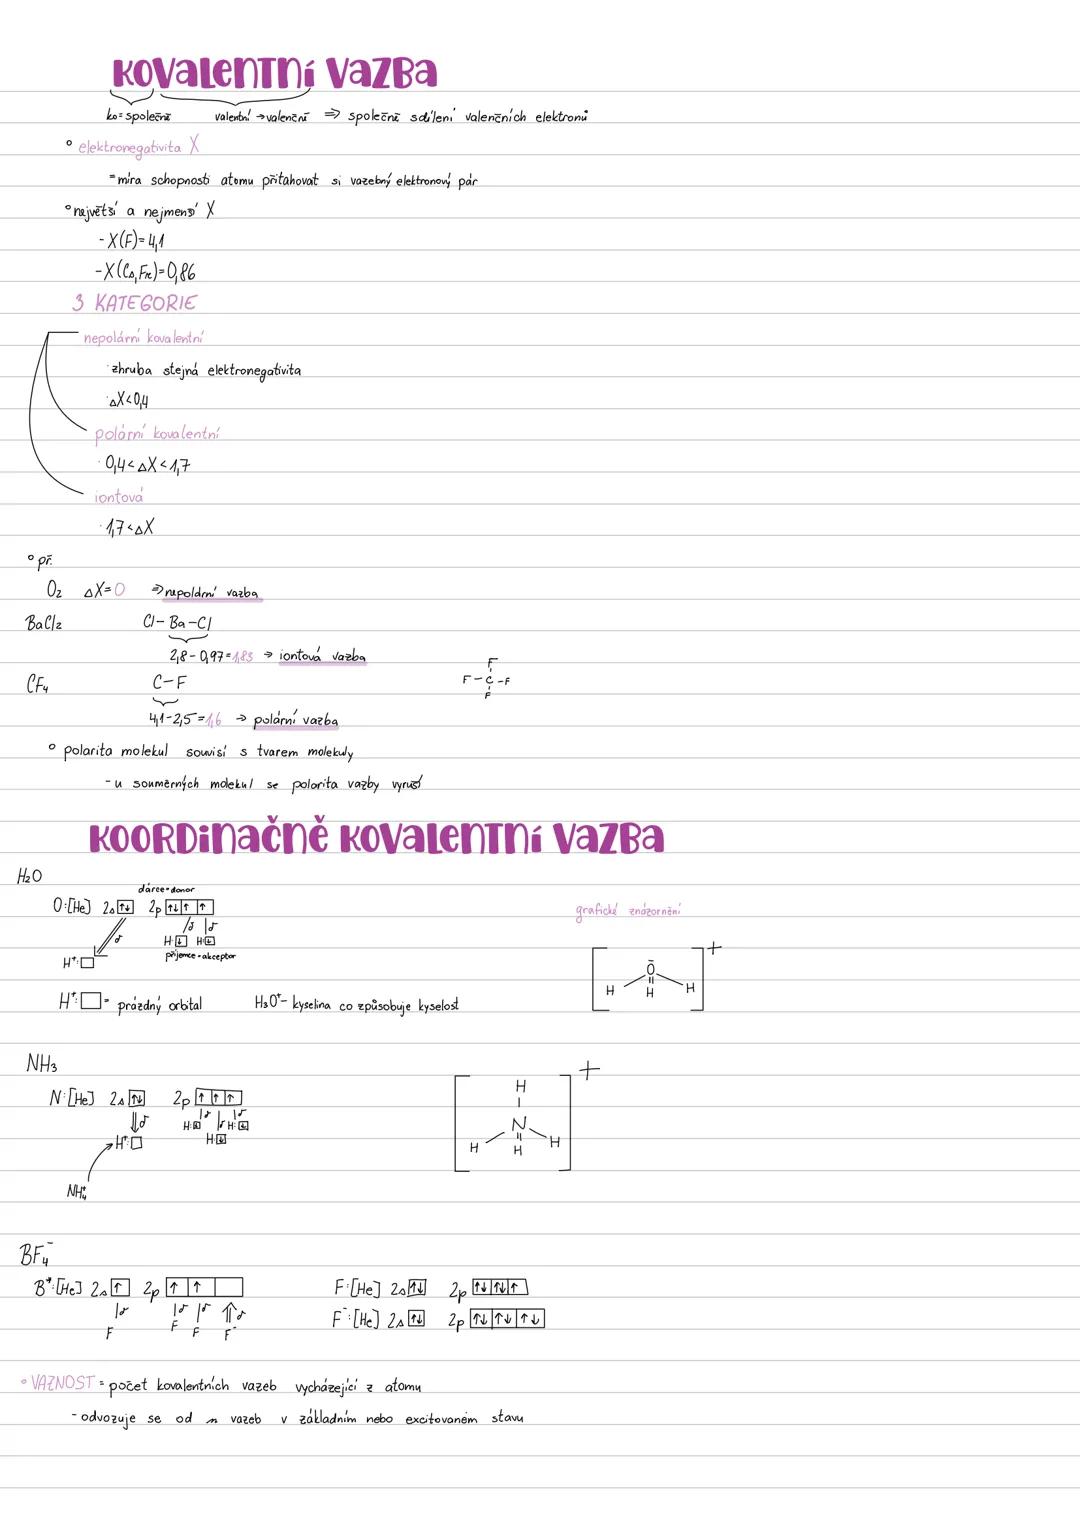 KOVALENTNÍ VAZBA
ko = společné valentní → valenční ⇒ společné sdílení valenčních elektronů
° elektronegativita X
= míra schopnosti atomu přitahovat si vazebný elektronový pár
° největší a nejmenší X
- X(F) = 4,1
- X(Cs, Fr) = 0,86
3 KATEGORIE
nepolární kovalentní
· zhruba stejná elektronegativita
· ΔX < 0,4
polární kovalentní
· 0,4 < ΔX < 1,7
iontová
· 1,7 < ΔX
° př.
O₂ ΔX = 0 ⇒ nepolární vazba
BaCl₂ Cl – Ba – Cl
2,8 - 0,97 = 1,83 → iontová vazba
CF₄ C – F
F
F – C – F
F
4,1 - 2,5 = 1,6 → polární vazba
° polarita molekul souvisí s tvarem molekuly
- u souměrných molekul se polarita vazby vyruší
KOORDINAČNĚ KOVALENTNÍ VAZBA
H₂O
dárce = donor
O: [He] 2s ↑↓ 2p ↑↓ ↑ ↑
σ σ σ
H: ↓ H: ↓
H⁺: □
příjemce = akceptor
grafické znázornění
[ H O H H ]⁺
H⁺: □ = prázdný orbital H₃O⁺ - kyselina co způsobuje kyselost
NH₃
N: [He] 2s ↑↓ 2p ↑ ↑ ↑
σ σ σ σ
H: ↓ H: ↓
H⁺: □ H: ↓
NH₄⁺
[ H N H H H ]⁺
BF₄⁻
B*: [He] 2s ↑ 2p ↑ ↑
σ σ σ σ
F F F F⁻
F: [He] 2s ↑↓ 2p ↑↓ ↑↓ ↑
F⁻: [He] 2s ↑↓ 2p ↑↓ ↑↓ ↑↓
° VAZNOST = počet kovalentních vazeb vycházející z atomu
- odvozuje se od n vazeb v základním nebo excitovaném stavu